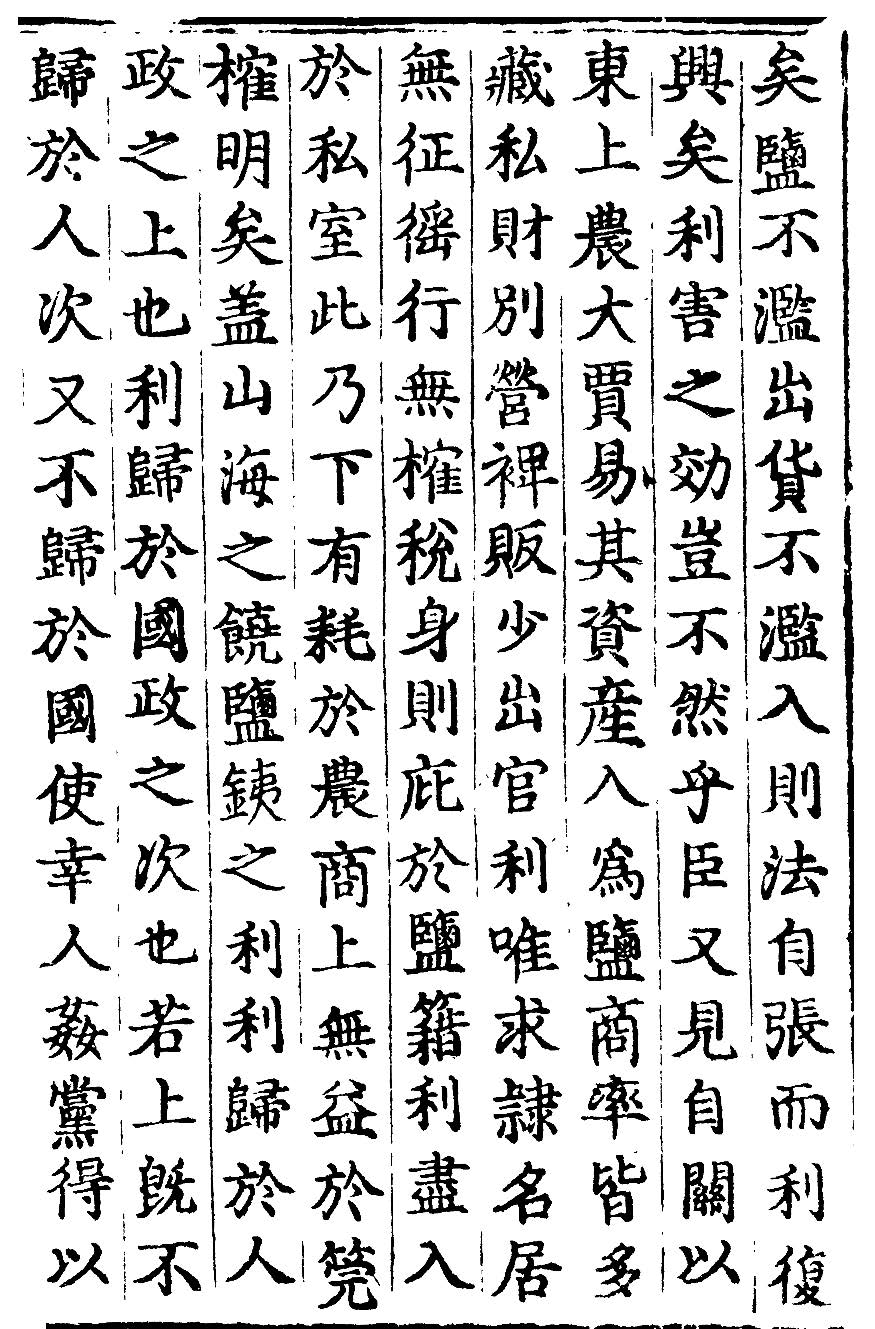 矣鹽不濫出貨不濫入則法自張而利復
興矣利害之効豈不然乎臣又見自關以
東上農大賈易其資產入為鹽商率皆多
藏私財別營裨販少出官利唯求隷名居
無征徭行無榷稅身則庇於鹽籍利盡入
於私室此乃下有耗於農商上無益於筦
榷明矣盖山海之饒鹽鐵之利利歸於人
政之上也利歸於國政之次也若上旣不
歸於人次又不歸於國使幸人姦黨得以